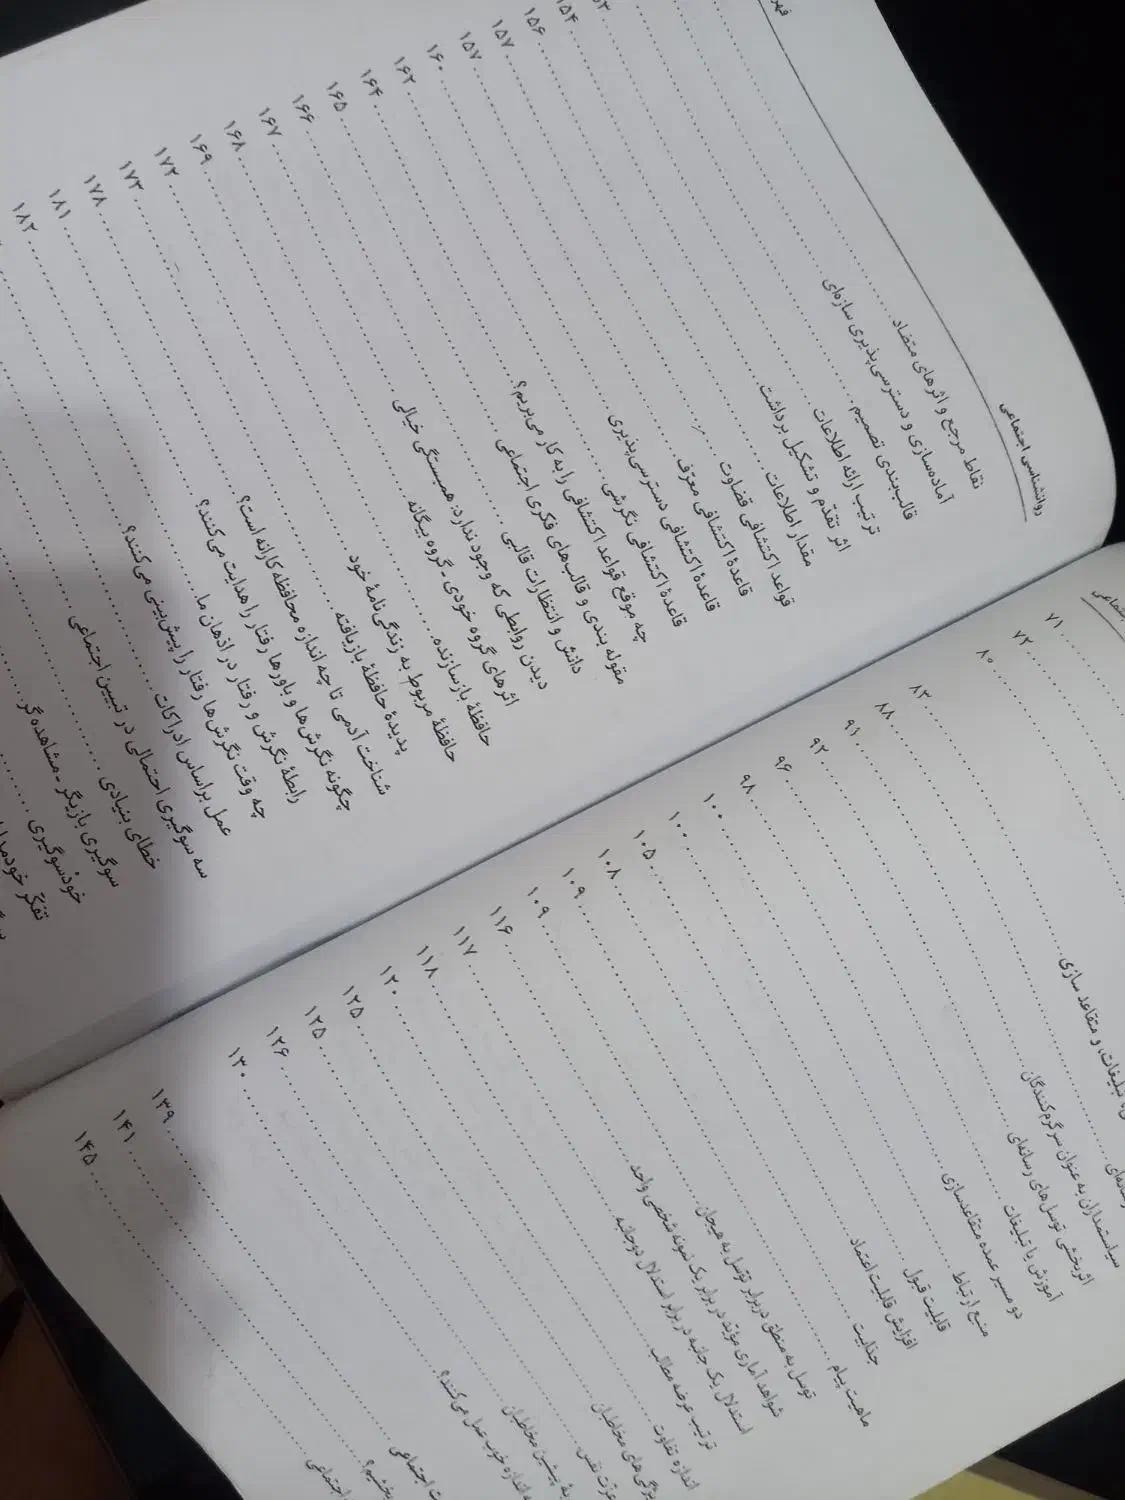 روانشناسی اجتماعی
نقاط مرجع و اثرهای متضاد
آماده‌سازی و دسترسی‌پذیری سازه‌ای
قالب‌بندی تصمیم
ترتیب ارائه اطلاعات ۱۵۴
اثر تقدّم و تشکیل برداشت ۱۵۶
مقدار اطلاعات ۱۵۷
قواعد اکتشافی قضاوت ۱۵۷
قاعدۀ اکتشافی معرّف ۱۶۰
قاعدۀ اکتشافی دسترسی‌پذیری ۱۶۲
قاعدۀ اکتشافی نگرشی ۱۶۴
چه موقع قواعد اکتشافی را به کار می‌بریم؟ ۱۶۵
مقوله بندی و قالب‌های فکری اجتماعی ۱۶۶
دانش و انتظارات قالبی ۱۶۷
دیدن روابطی که وجود ندارد: همبستگی خیالی ۱۶۸
اثرهای گروه خودی ـ گروه بیگانه ۱۶۹
حافظۀ بازسازنده ۱۷۲
حافظۀ مربوط به زندگی‌نامۀ خود ۱۷۳
پدیدۀ حافظۀ بازیافته ۱۷۸
شناخت آدمی تا چه اندازه محافظه‌کارانه است؟ ۱۸۱
چگونه نگرش‌ها و باورها رفتار را هدایت می‌کنند؟ ۱۸۲
رابطۀ نگرش و رفتار در اذهان ما
چه وقت نگرش‌ها رفتار را پیش‌بینی می‌کنند؟
عمل براساس ادراکات
سه سوگیری احتمالی در تبیین اجتماعی
خطای بنیادی
سوگیری بازیگر ـ مشاهده‌گر
خودْسوگیری
تفکّر خودمدار
۷۱
۷۲
۸۰
تبلیغات، و متقاعد سازی ۸۳
رسانه‌ای ۸۸
سیاستمداران به عنوان سرگرم‌کنندگان ۹۱
اثربخشی توسل‌های رسانه‌ای ۹۲
آموزش یا تبلیغات ۹۶
دو مسیر عمده متقاعدسازی ۹۸
منبع ارتباط ۱۰۰
قابلیت قبول ۱۰۰
افزایش قابلیت اعتماد ۱۰۵
جذابیت ۱۰۸
ماهیت پیام ۱۰۹
توسل به منطق دربرابر توسل به هیجان ۱۰۹
شواهد آماری مؤثر در برابر یک نمونه شخصی واحد ۱۱۶
استدلال یک جانبه در برابر استدلال دوجانبه ۱۱۷
ترتیب عرضه مطالب ۱۱۸
اندازه تفاوت ۱۲۰
ویژگی‌های مخاطبان ۱۲۵
عزت نفس ۱۲۵
پیشین مخاطبان ۱۲۶
اندازه خوب عمل می‌کنند؟ ۱۳۰
اجتماعی ۱۳۹
بخشیم؟ ۱۴۱
اجتماعی ۱۴۵